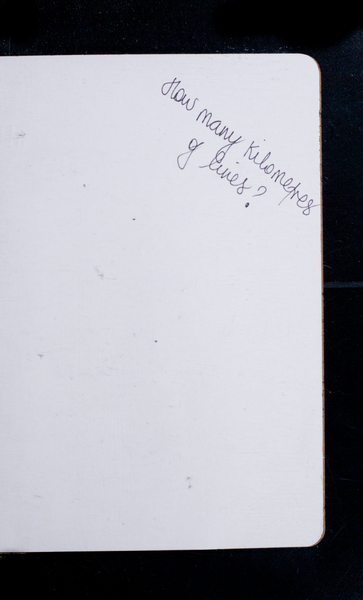 How many Kilometres
of lines?